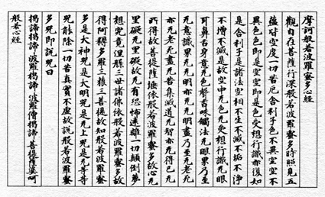 摩訶般若波羅蜜多心經
觀自在菩薩行深般若波羅蜜多時照見五
蘊皆空度一切苦厄舍利子色不異空空不
異色色即是空空即是色受想行識亦復如
是舍利子是諸法空相不生不滅不垢不淨
不增不減是故空中无色无受想行識无眼
耳鼻舌身意无色聲香味觸法无眼界乃至
无意識界无无明亦无无明盡乃至无老死
亦无老死盡无苦集滅道无智亦无得以无
所得故菩提薩埵依般若波羅蜜多故心无
罣礙无罣礙故无有恐怖遠離一切顛倒夢
想究竟涅槃三世諸佛依般若波羅蜜多故
得阿耨多羅三藐三菩提故知般若波羅蜜
多是大神呪是大明呪是无上呪是无等等
呪能除一切苦真實不虛故說般若波羅蜜
多呪即說呪曰
揭諦揭諦波羅揭諦波羅僧揭諦菩提薩婆訶
般若心經